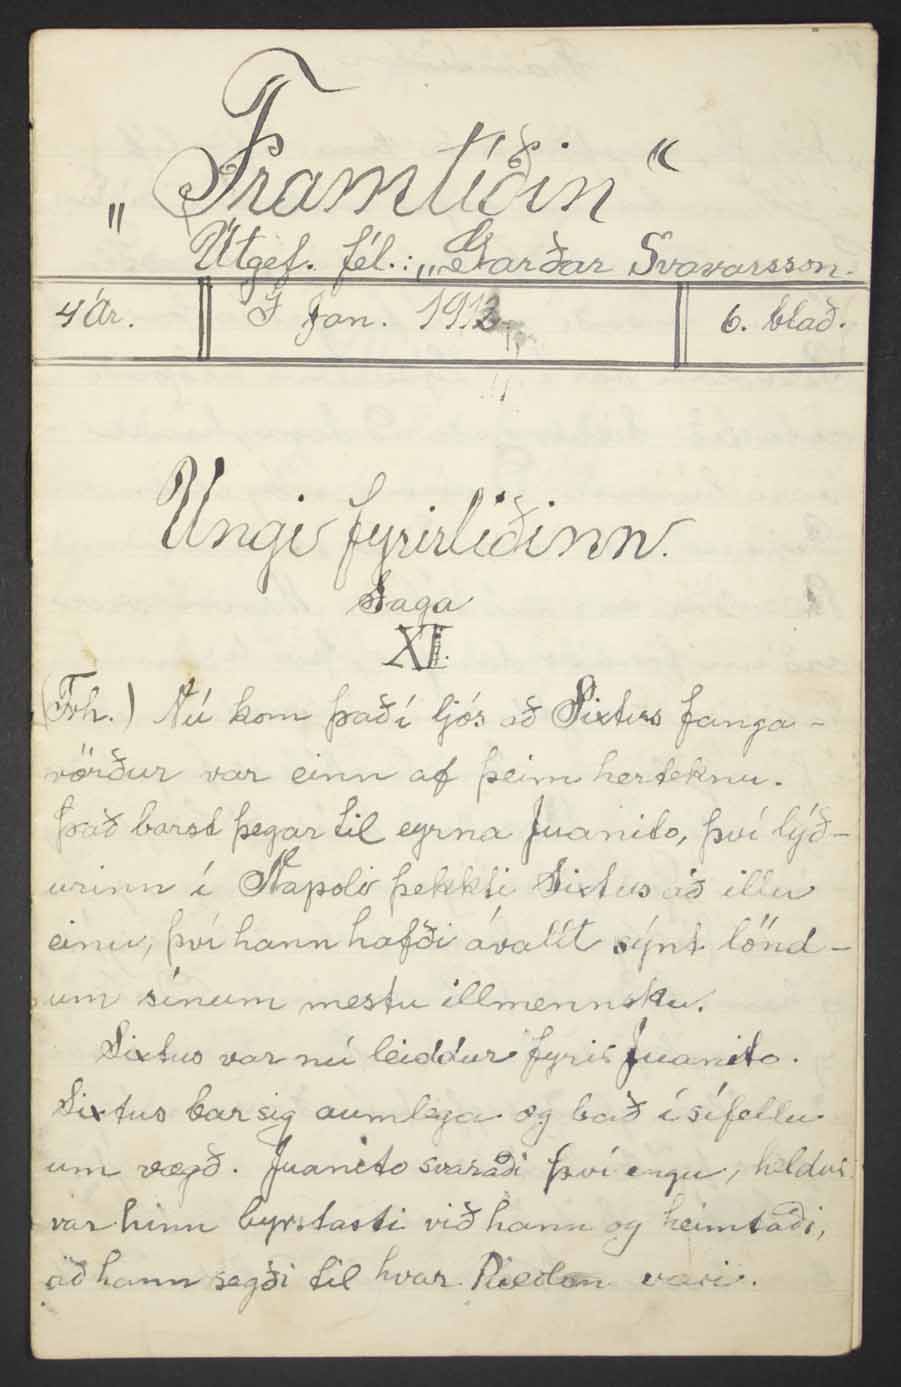 „Framtíðin“
Útgef. fél.: „Garðar Svavarsson.
4 Ár. I Jan. 1913 6. blað.
Ungi fyrirliðinn.
Saga
XI.
(Frh.) Nú kom það í ljós að Sixtus fanga-
vörður var einn af þeim herteknu.
Það barst þegar til eyrna Juanito, því lýð-
urinn í Napoli þekkti Sixtus að illu
einu, því hann hafði ávalít sýnt lönd-
um sínum mestu illmennsku.
Sixtus var nú leiddur fyrir Juanito.
Sixtus bar sig aumlega og bað í sífellu
um vægð. Juanito svaraði því engu, heldur
var hinn byrstasti við hann og heimtaði,
að hann segði til hvar væri.